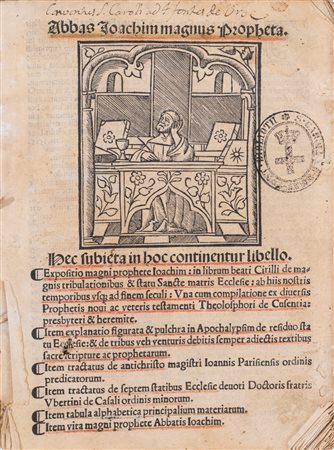 Conventus S. Caroli ad 4 fontes de Urbe
Abbas Ioachim magnus Propheta.
Hec subiecta in hoc continentur libello.
Expositio magni prophete Ioachim: in librum beati Cirilli de ma-
gnis tribulationibus & statu Sancte matris Ecclesie: ab hiis nostris
temporibus vsque ad finem seculi: Una cum compilatione ex diuersis
Prophetis noui ac veteris testamenti Theolosphori de Cusentia:
presbyteri & heremite.
Item explanatio figurata & pulchra in Apochalypsim de residuo sta
tu Ecclesie: & de tribus veh venturis debitis semper adiectis textibus
sacre scripture ac prophetarum.
Item tractatus de antichristo magistri Ioannis Parisiensis ordinis
predicatorum.
Item tractatus de septem statibus Ecclesie deuoti Doctoris fratris
Vbertini de Casali ordinis minorum.
Item tabula alphabetica principalium materiarum.
Item vita magni prophete Abbatis Ioachim.